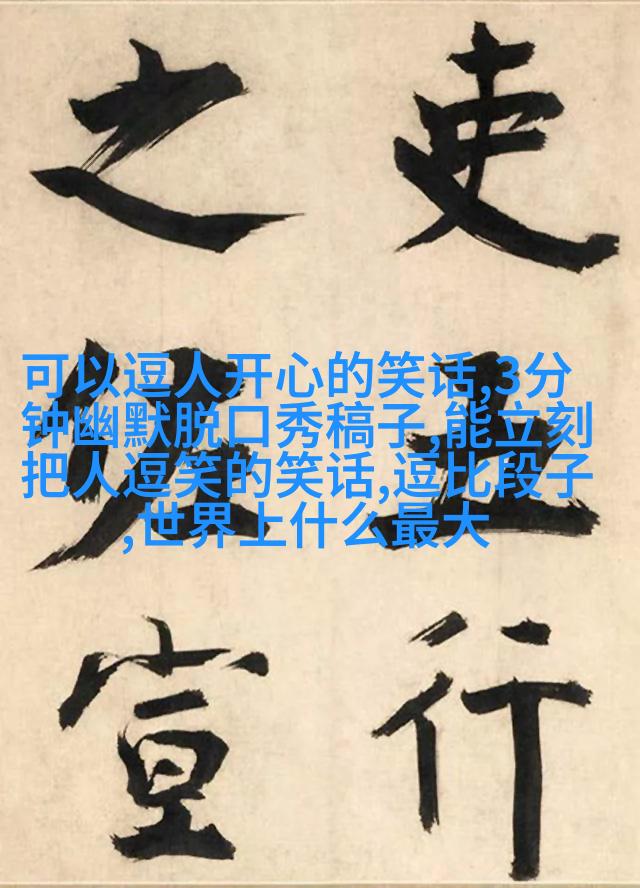 可以逗人开心的笑话,3分
钟幽默脱口秀稿子,能立刻
把人逗笑的笑话,逗比段子
,世界上什么最大
吏行
之宣